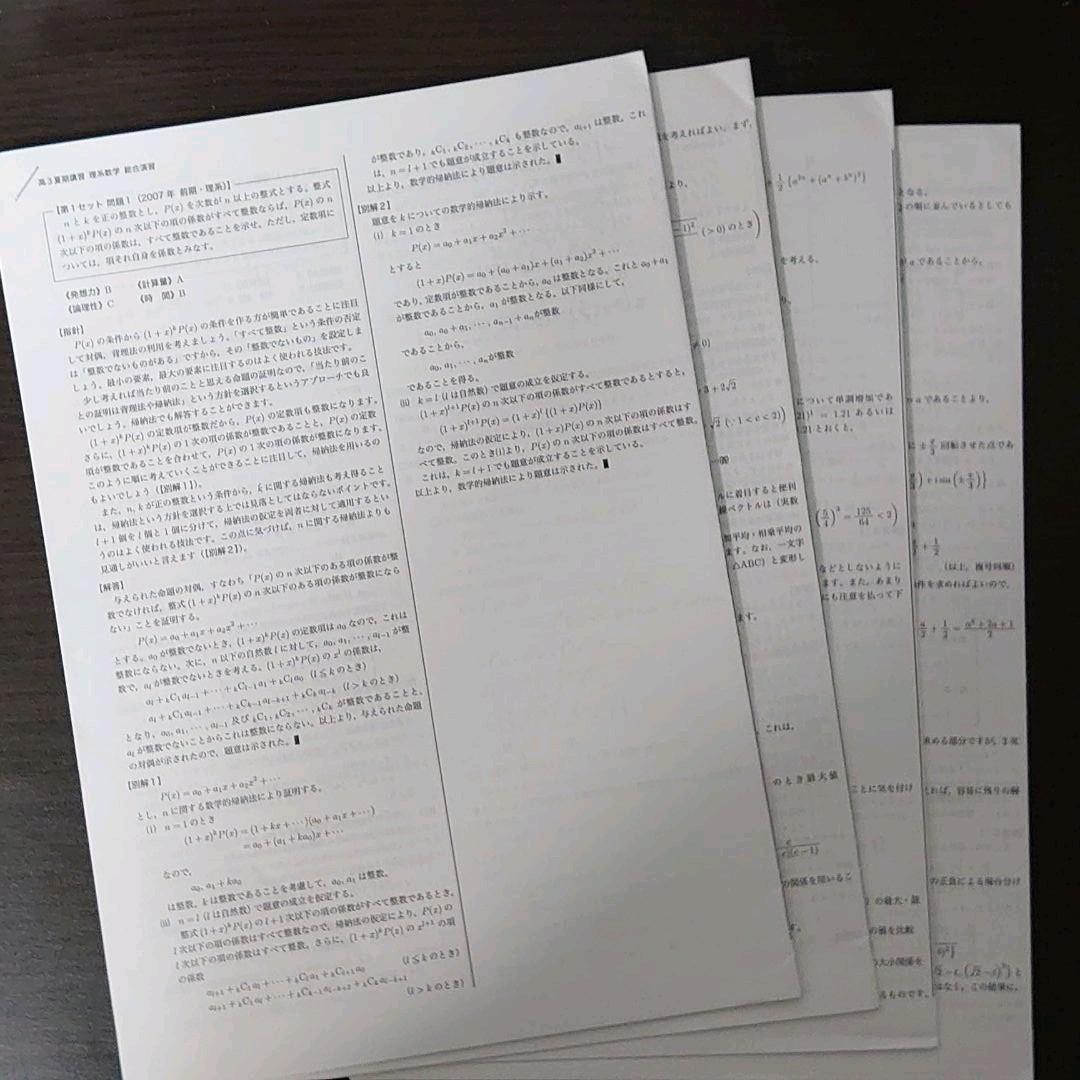 高3夏期講習 理系数学 総合演習
【第1セット 問題1(2007年 前期・理系)】
nとkを正の整数とし,P(x)を次数がn以上の整式とする。整式
(1+x)^k P(x)のn次以下の項の係数がすべて整数ならば,P(x)のn
次以下の項の係数は,すべて整数であることを示せ。ただし,定数項に
ついては,項それ自身を係数とみなす。
《発想力》B 《計算量》A
《論理性》C 《時 間》B
[指針]
P(x)の条件から(1+x)^k P(x)の条件を作る方が簡単であることに注目
して対偶,背理法の利用を考えましょう。「すべて整数」という条件の否定
は「整数でないものがある」ですから,その「整数でないもの」を設定しま
しょう。最小の要素,最大の要素に注目するのはよく使われる技法です。
少し考えれば当たり前のことと思える命題の証明なので,「当たり前のこ
との証明は背理法や帰納法」という方針を選択するというアプローチでも良
いでしょう。帰納法でも解答することができます。
(1+x)^k P(x)の定数項が整数だから,P(x)の定数項も整数になります。
さらに,(1+x)^k P(x)の1次の項の係数が整数であることと,P(x)の定数
項が整数であることを合わせて,P(x)の1次の項の係数が整数になります。
このように順に考えていくことができることに注目して,帰納法を用いるの
もよいでしょう([別解1])。
また,n,kが正の整数という条件から,kに関する帰納法も考え得ること
は,帰納法という方針を選択する上では見落としてはならないポイントです。
l+1個をl個と1個に分けて,帰納法の仮定を両者に対して適用するとい
うのはよく使われる技法です。この点に気づけば,nに関する帰納法よりも
見通しがいいと言えます([別解2])。
[解答]
与えられた命題の対偶,すなわち「P(x)のn次以下のある項の係数が整
数でなければ,整式(1+x)^k P(x)のn次以下のある項の係数が整数になら
ない」ことを証明する。
P(x)=a₀+a₁x+a₂x²+⋯
とする。a₀が整数でないとき,(1+x)^k P(x)の定数項はa₀なので,これは
整数にならない。次に,n以下の自然数lに対して,a₀,a₁,⋯,a_{l-1}が整
数で,a_lが整数でないときを考える。(1+x)^k P(x)のx^lの係数は,
a_l+ₖC₁a_{l-1}+⋯+ₖC_{l-1}a₁+ₖC_l a₀ (l≦kのとき)
a_l+ₖC₁a_{l-1}+⋯+ₖC_{k-1}a_{l-k+1}+ₖCₖa_{l-k} (l>kのとき)
となり,a₀,a₁,⋯,a_{l-1}及びₖC₁,ₖC₂,⋯,ₖCₖが整数であることと,
a_lが整数でないことからこれは整数にならない。以上より,与えられた命題
の対偶が示されたので,題意は示された。∎
[別解1]
P(x)=a₀+a₁x+a₂x²+⋯
とし,nに関する数学的帰納法により証明する。
(i) n=1のとき
(1+x)^k P(x)=(1+kx+⋯)(a₀+a₁x+⋯)
=a₀+(a₁+ka₀)x+⋯
なので,
a₀,a₁+ka₀
は整数。kは整数であることを考慮して,a₀,a₁は整数。
(ii) n=l(lは自然数)で題意の成立を仮定する。
整式(1+x)^k P(x)のl+1次以下の項の係数がすべて整数であるとき,
l次以下の項の係数はすべて整数なので,帰納法の仮定により,P(x)の
l次以下の項の係数はすべて整数。さらに,(1+x)^k P(x)のx^{l+1}の項
の係数
a_{l+1}+ₖC₁a_l+⋯+ₖC_l a₁+ₖC_{l+1}a₀ (l≦kのとき)
a_{l+1}+ₖC₁a_l+⋯+ₖC_{k-1}a_{l-k+2}+ₖCₖa_{l-k+1} (l>kのとき)
が整数であり,ₖC₁,ₖC₂,⋯,ₖCₖも整数なので,a_{l+1}は整数。これ
は,n=l+1でも題意が成立することを示している。
以上より,数学的帰納法により題意は示された。∎
[別解2]
題意をkについての数学的帰納法により示す。
(i) k=1のとき
P(x)=a₀+a₁x+a₂x²+⋯
とすると
(1+x)P(x)=a₀+(a₀+a₁)x+(a₁+a₂)x²+⋯
であり,定数項が整数であることから,a₀は整数となる。これとa₀+a₁
が整数であることから,a₁が整数となる。以下同様にして,
a₀,a₀+a₁,⋯,a_{n-1}+a_nが整数
であることから,
a₀,a₁,⋯,a_nが整数
であることを得る。
(ii) k=l(lは自然数)で題意の成立を仮定する。
(1+x)^{l+1}P(x)のn次以下の項の係数がすべて整数であるとすると,
(1+x)^{l+1}P(x)=(1+x)^l{(1+x)P(x)}
なので,帰納法の仮定により,(1+x)P(x)のn次以下の項の係数はす
べて整数。このとき(i)より,P(x)のn次以下の項の係数はすべて整数。
これは,k=l+1でも題意が成立することを示している。
以上より,数学的帰納法により題意は示された。∎
を考えればよい。まず,
より,
(>0)のとき)
≠0)
+3+2√2
√2(∵1<c<2))
ルに着目すると便利
線ベクトルは(実数
加平均・相乗平均の
ます。なお,一文字
△ABC)と変形し
ます。
これは,
のとき最大値
の関係を用いるこ
½{a^{2n}+(aⁿ+bⁿ)²}
を考える。
について単調増加であ
=1.21あるいは
1.21とおくと,
(5/4)³=125/64<2)
などとしないように
ます。また,あまり
にも注意を払って下
ことに気を付け
)の最大・最
の値を比較
の大小関係を
るものです。
となる。
の順に並んでいるとしても
aであることから,
aであることより,
に±π/3回転させた点であ
+½
(以上,複号同順)
件を求めればよいので,
a/2+½=(a²+2a+1)/2
求める部分ですが,3次
れば,容易に残りの解
の正負による場合分け
はなく,この結果に,